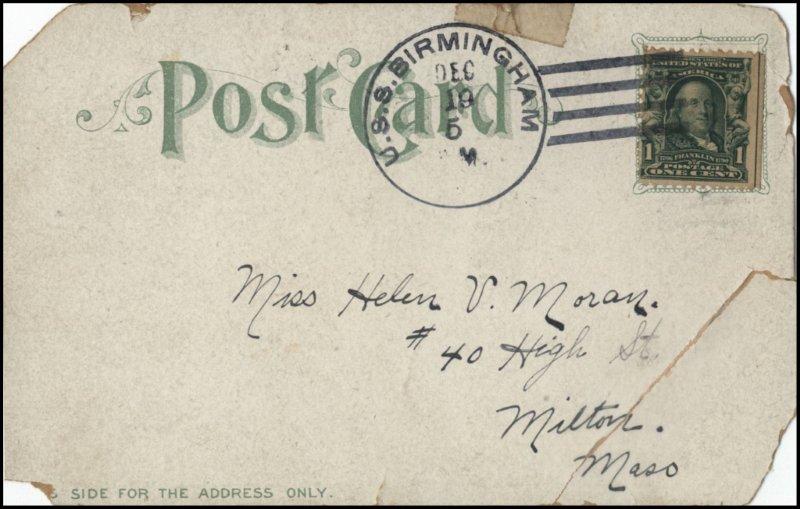 Post Card
U.S.S. BIRMINGHAM
DEC
19
5
M.
SERIES 1902
UNITED STATES OF
AMERICA
1 1706 FRANKLIN 1790 1
POSTAGE
ONE CENT
Miss Helen V. Moran.
# 40 High St.
Milton.
Mass
S SIDE FOR THE ADDRESS ONLY.